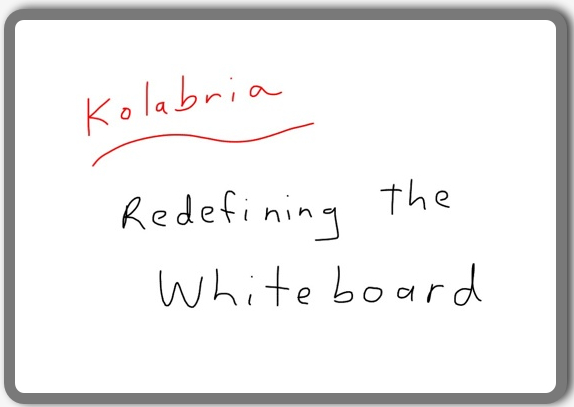 Kolabria
Redefining the
Whiteboard